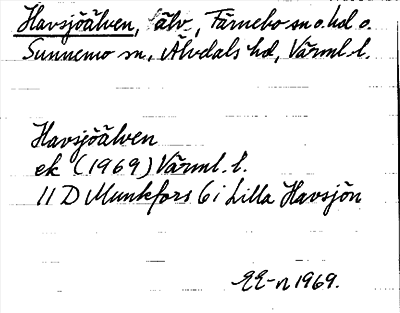 Havsjöälven, älv, Färnebo sn o. hd o.
Sunnemo sn, Älvdals hd, Värml. l.
Havsjöälven
ek (1969) Värml. l.
11 D Munkfors 6 i Lilla Havsjön
EE-n 1969.